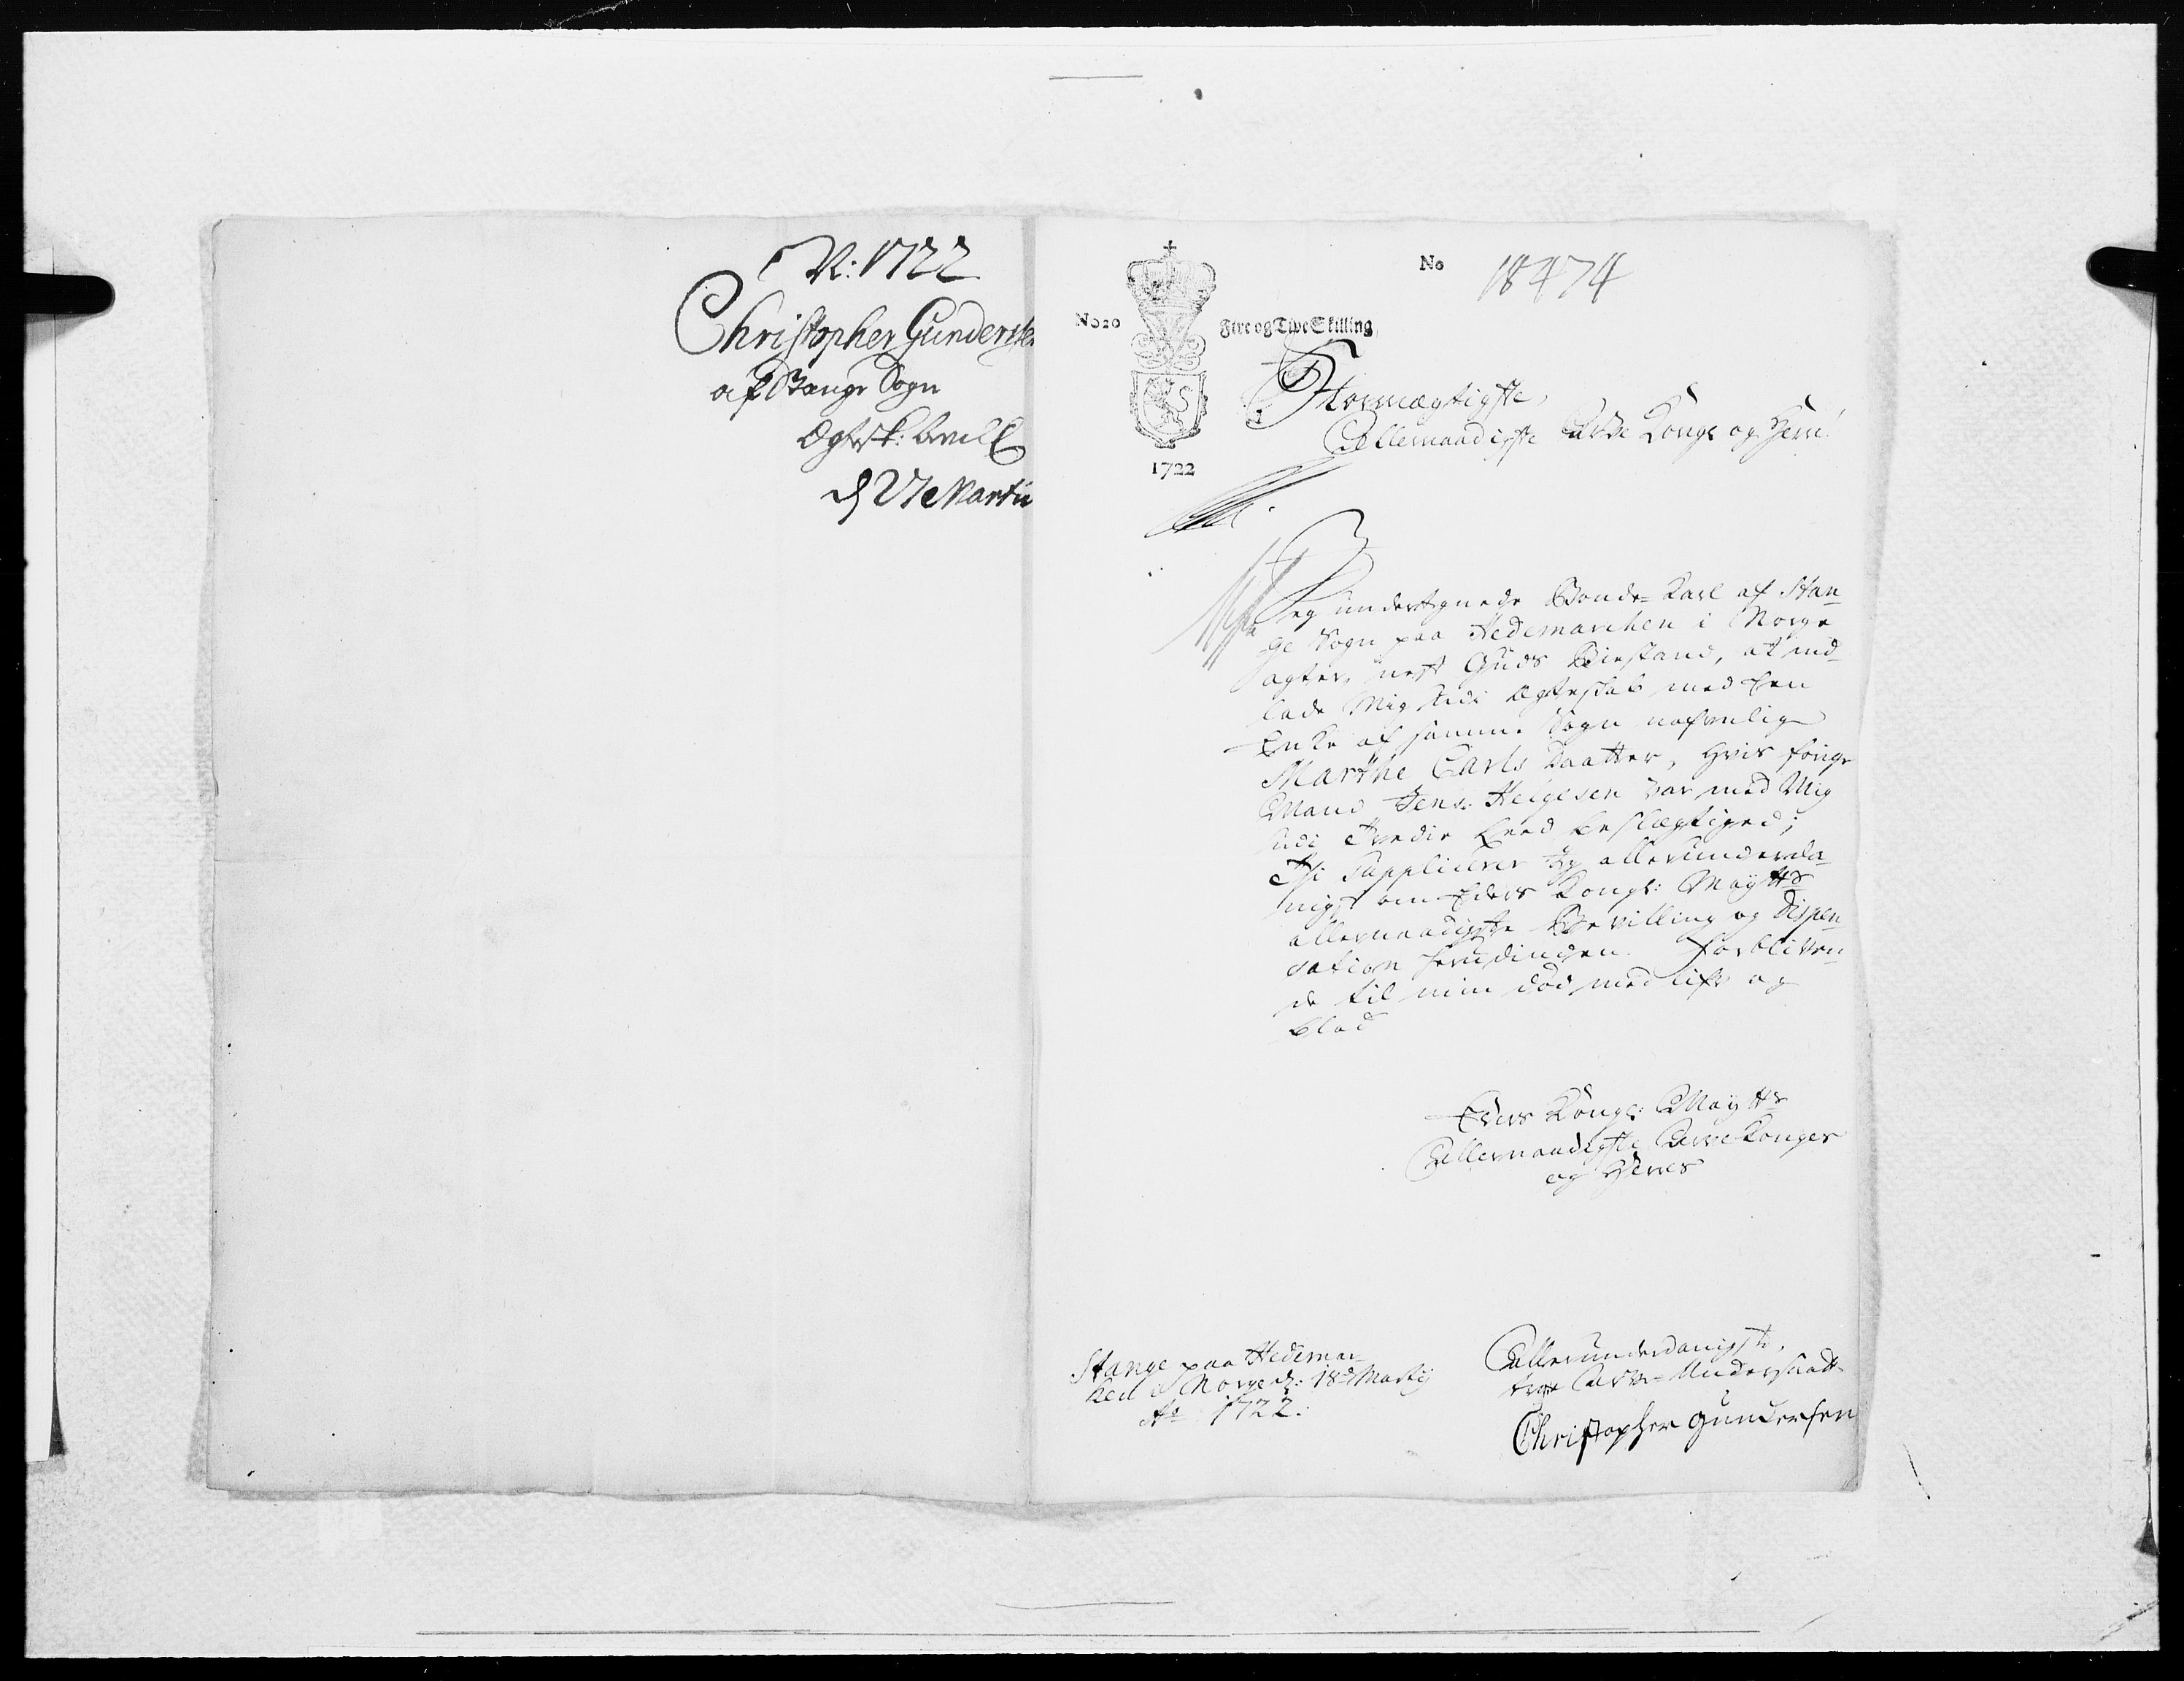 N: 1722
Christopher Gundersen
af Stange Sogn
Ægtesk: bevill
d 27 Martii
No 18474
No 20 Fire og Tive Skilling
1722
Stormægtigste,
Allernaadigste Arve Konge og Herre!
Jeg undertegnede Bonde=Karl af Stan-
ge Sogn paa Hedemarchen i Norge
agter, nest Guds Biestand, at ind-
lade Mig udi Ægteskab med Een
Enke af samme Sogn nafnlig
Marthe Carls Daatter, hvis forige
Mand Jens Helgesen var med Mig
udi Tredie Leed beslægtiged;
Thi Supplicerer Jeg allerunderda-
nigst om Eders Kongl: Mayts
allernaadigste Bevilling og Dispen-
sation herudinden. Forbliven-
de til min død med lif og
blod
Eders Kongl: Mayts
Allernaadigste Arve Konges
og Herres
Stange paa Hedemar-
ken i Norge d: 18de Martij
Ao 1722.
Allerunderdanigste,
Arve=Undersaatt
Christopher Gundersen